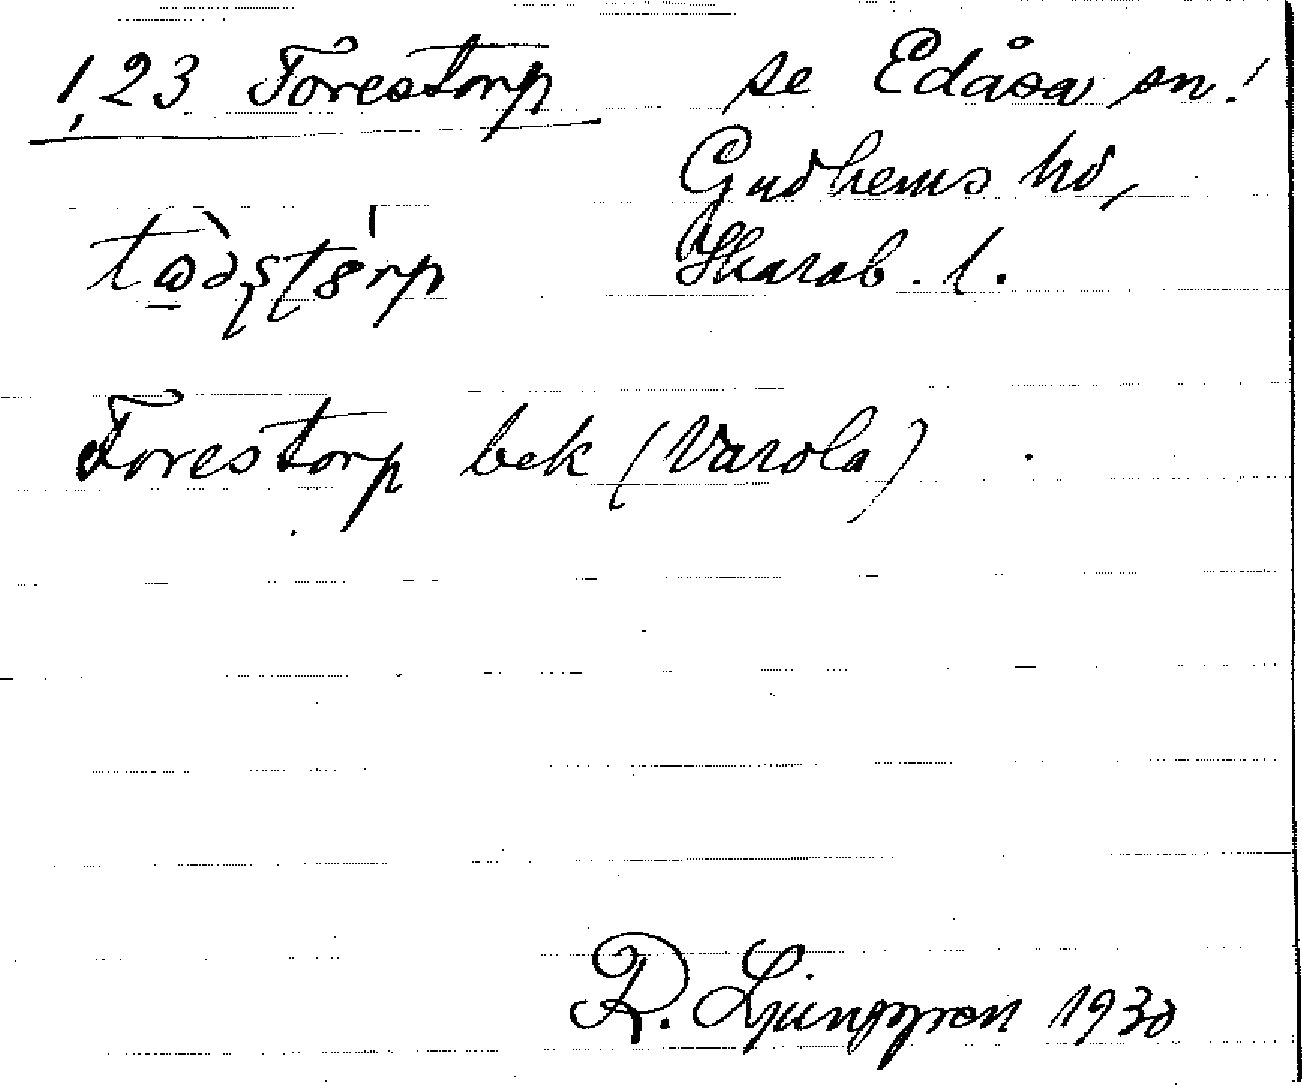 1,23 Torestorp se Edåsa sn!
Gudhems hd,
Skarab. l.
Torestorp bek (Varola)
R. Ljunggren 1930